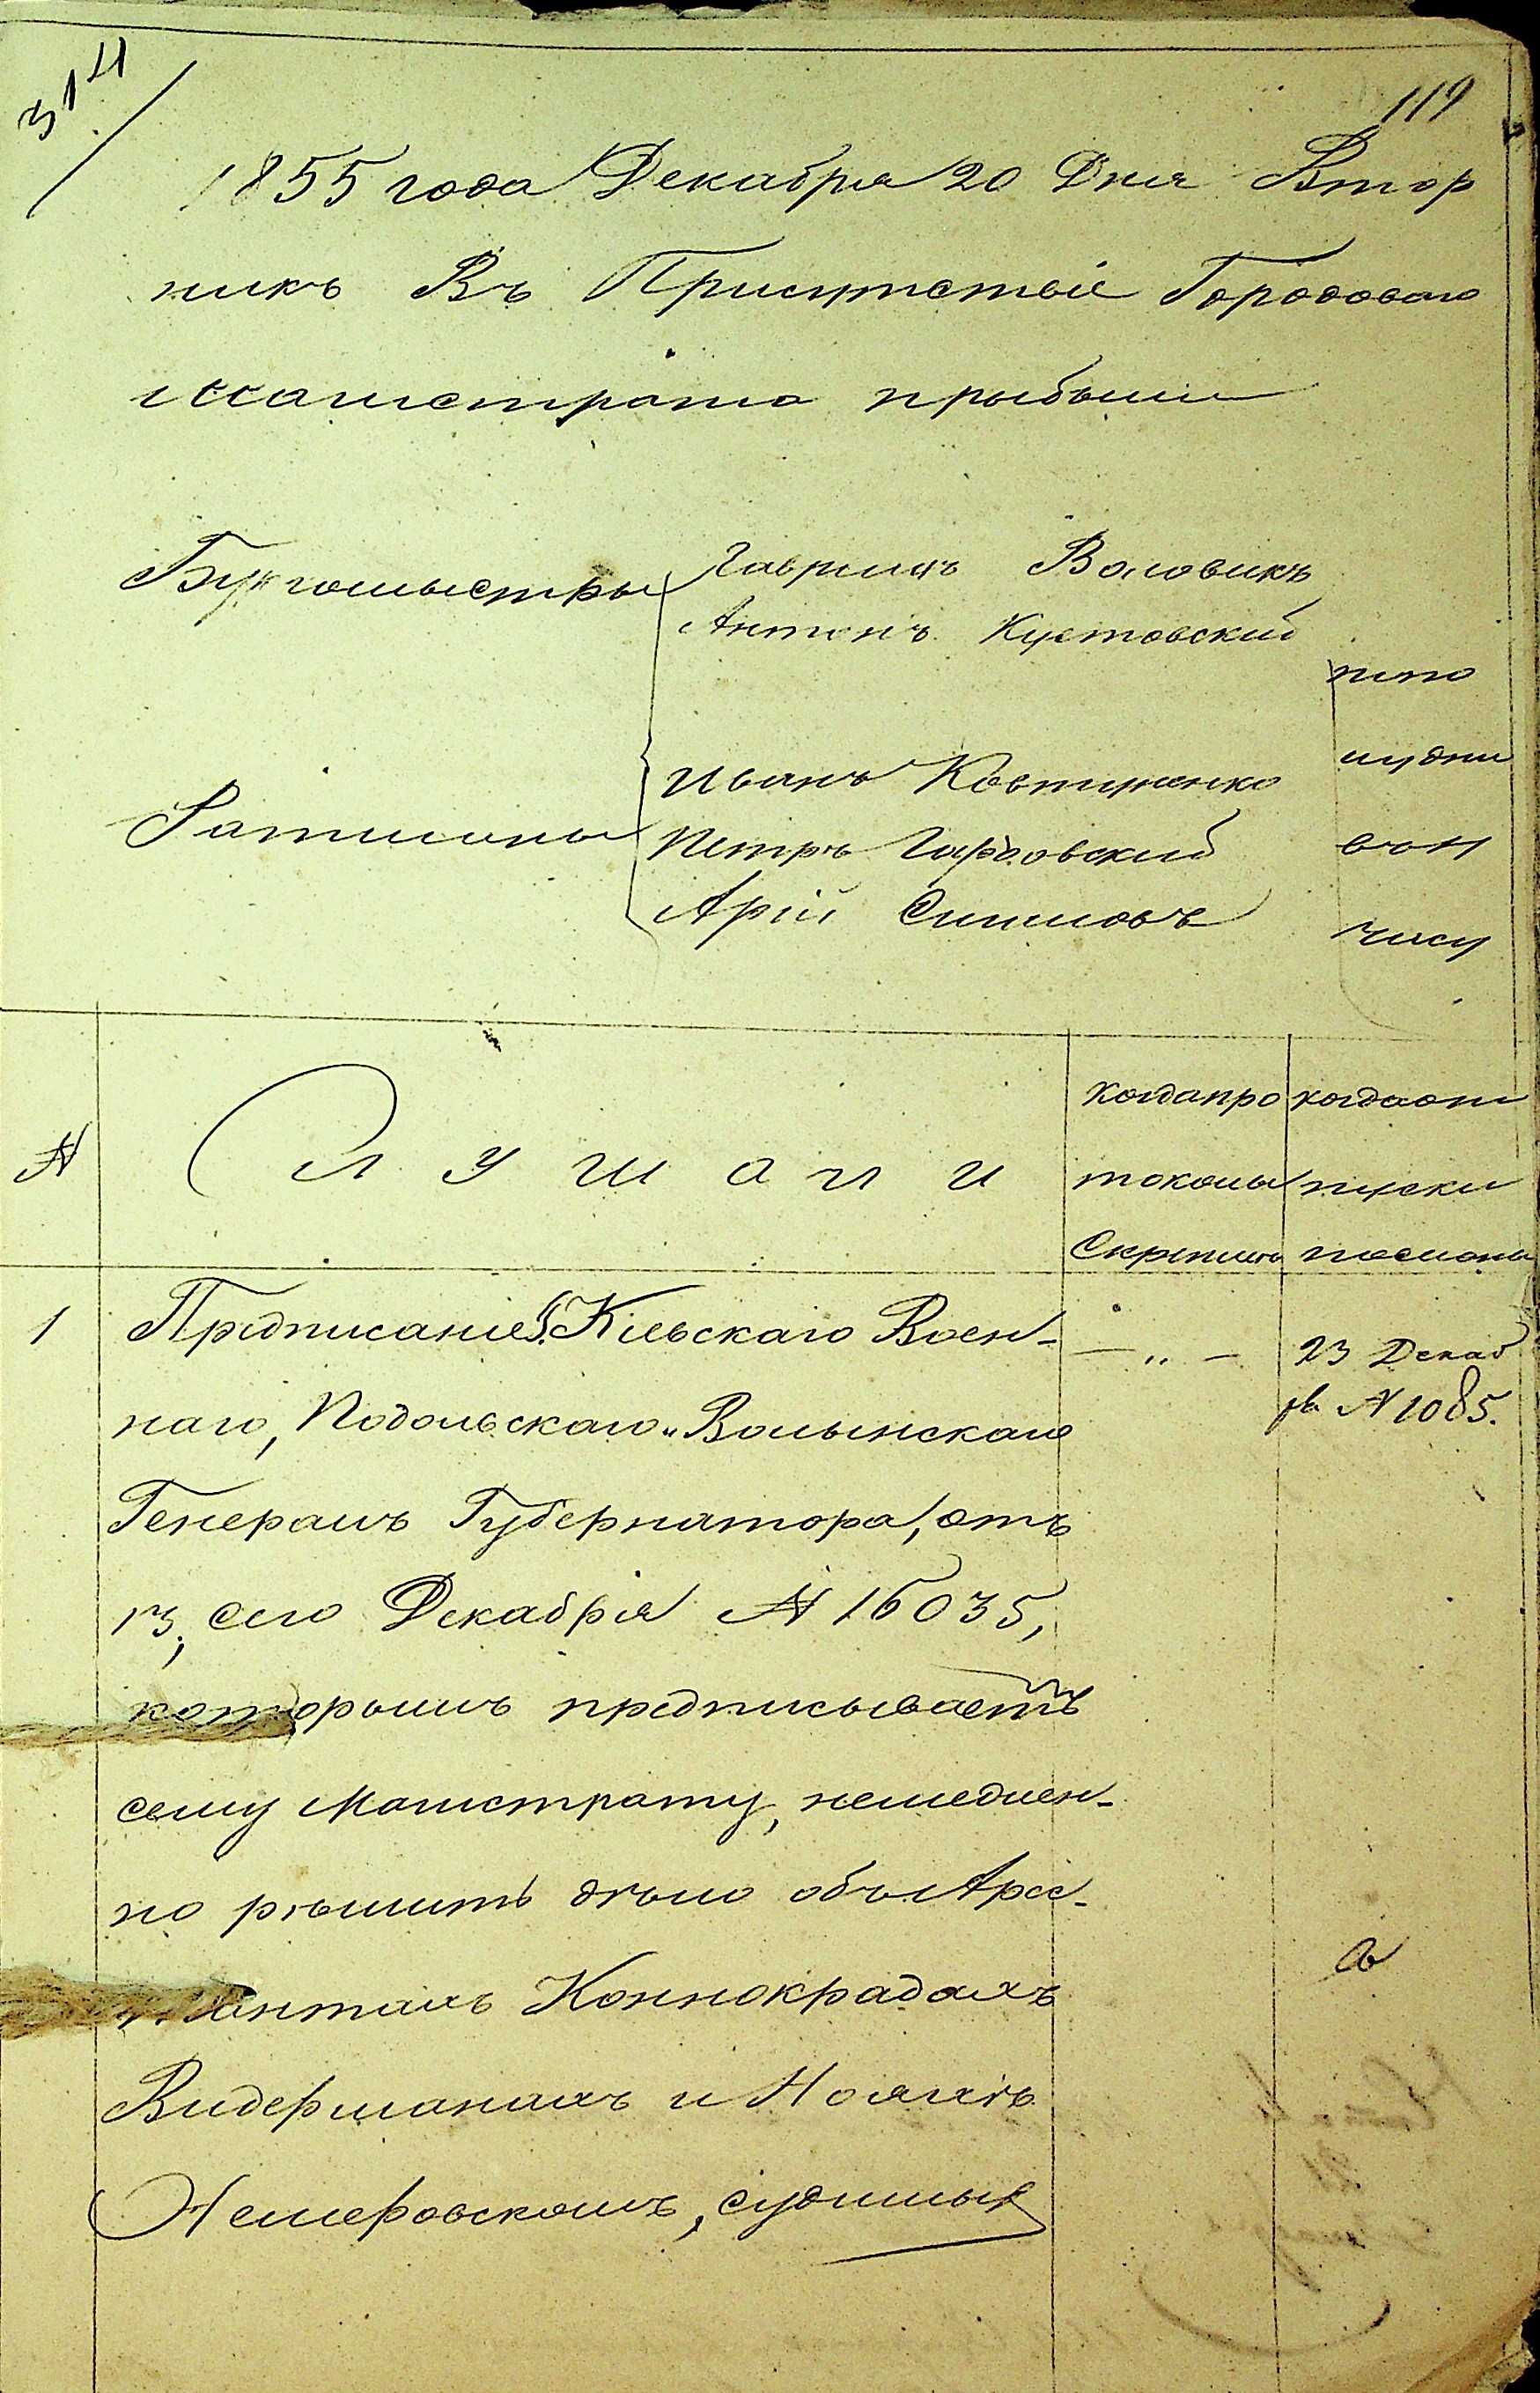 314
119
1855 года Декабря 20 Дня Втор
никъ Въ Присутствіе Городоваго
Магистрата прибыли
Бургомыстры
Гаврилъ Воловикъ
Антонъ Кустовский
Ратманы
Иванъ Костюченко
Петръ
Арій
по
полу
дни
часу
№
Слушали
когда про
токолы
Скреплены
когда от
пуски
посланы
1
Предписаніе Г. Кіевскаго Воен-
наго, Подольскаго и Волынскаго
Генералъ Губернатора, отъ
13, сего Декабрія № 16035,
которымъ предписываетъ
сему Магистрату, немедлен-
но рѣшить дѣло объ Аре-
стантахъ Коннокрадахъ
Видерманахъ и
Немеровскомъ, судимыхъ
— „ —
23 Декаб
ря № 1085.